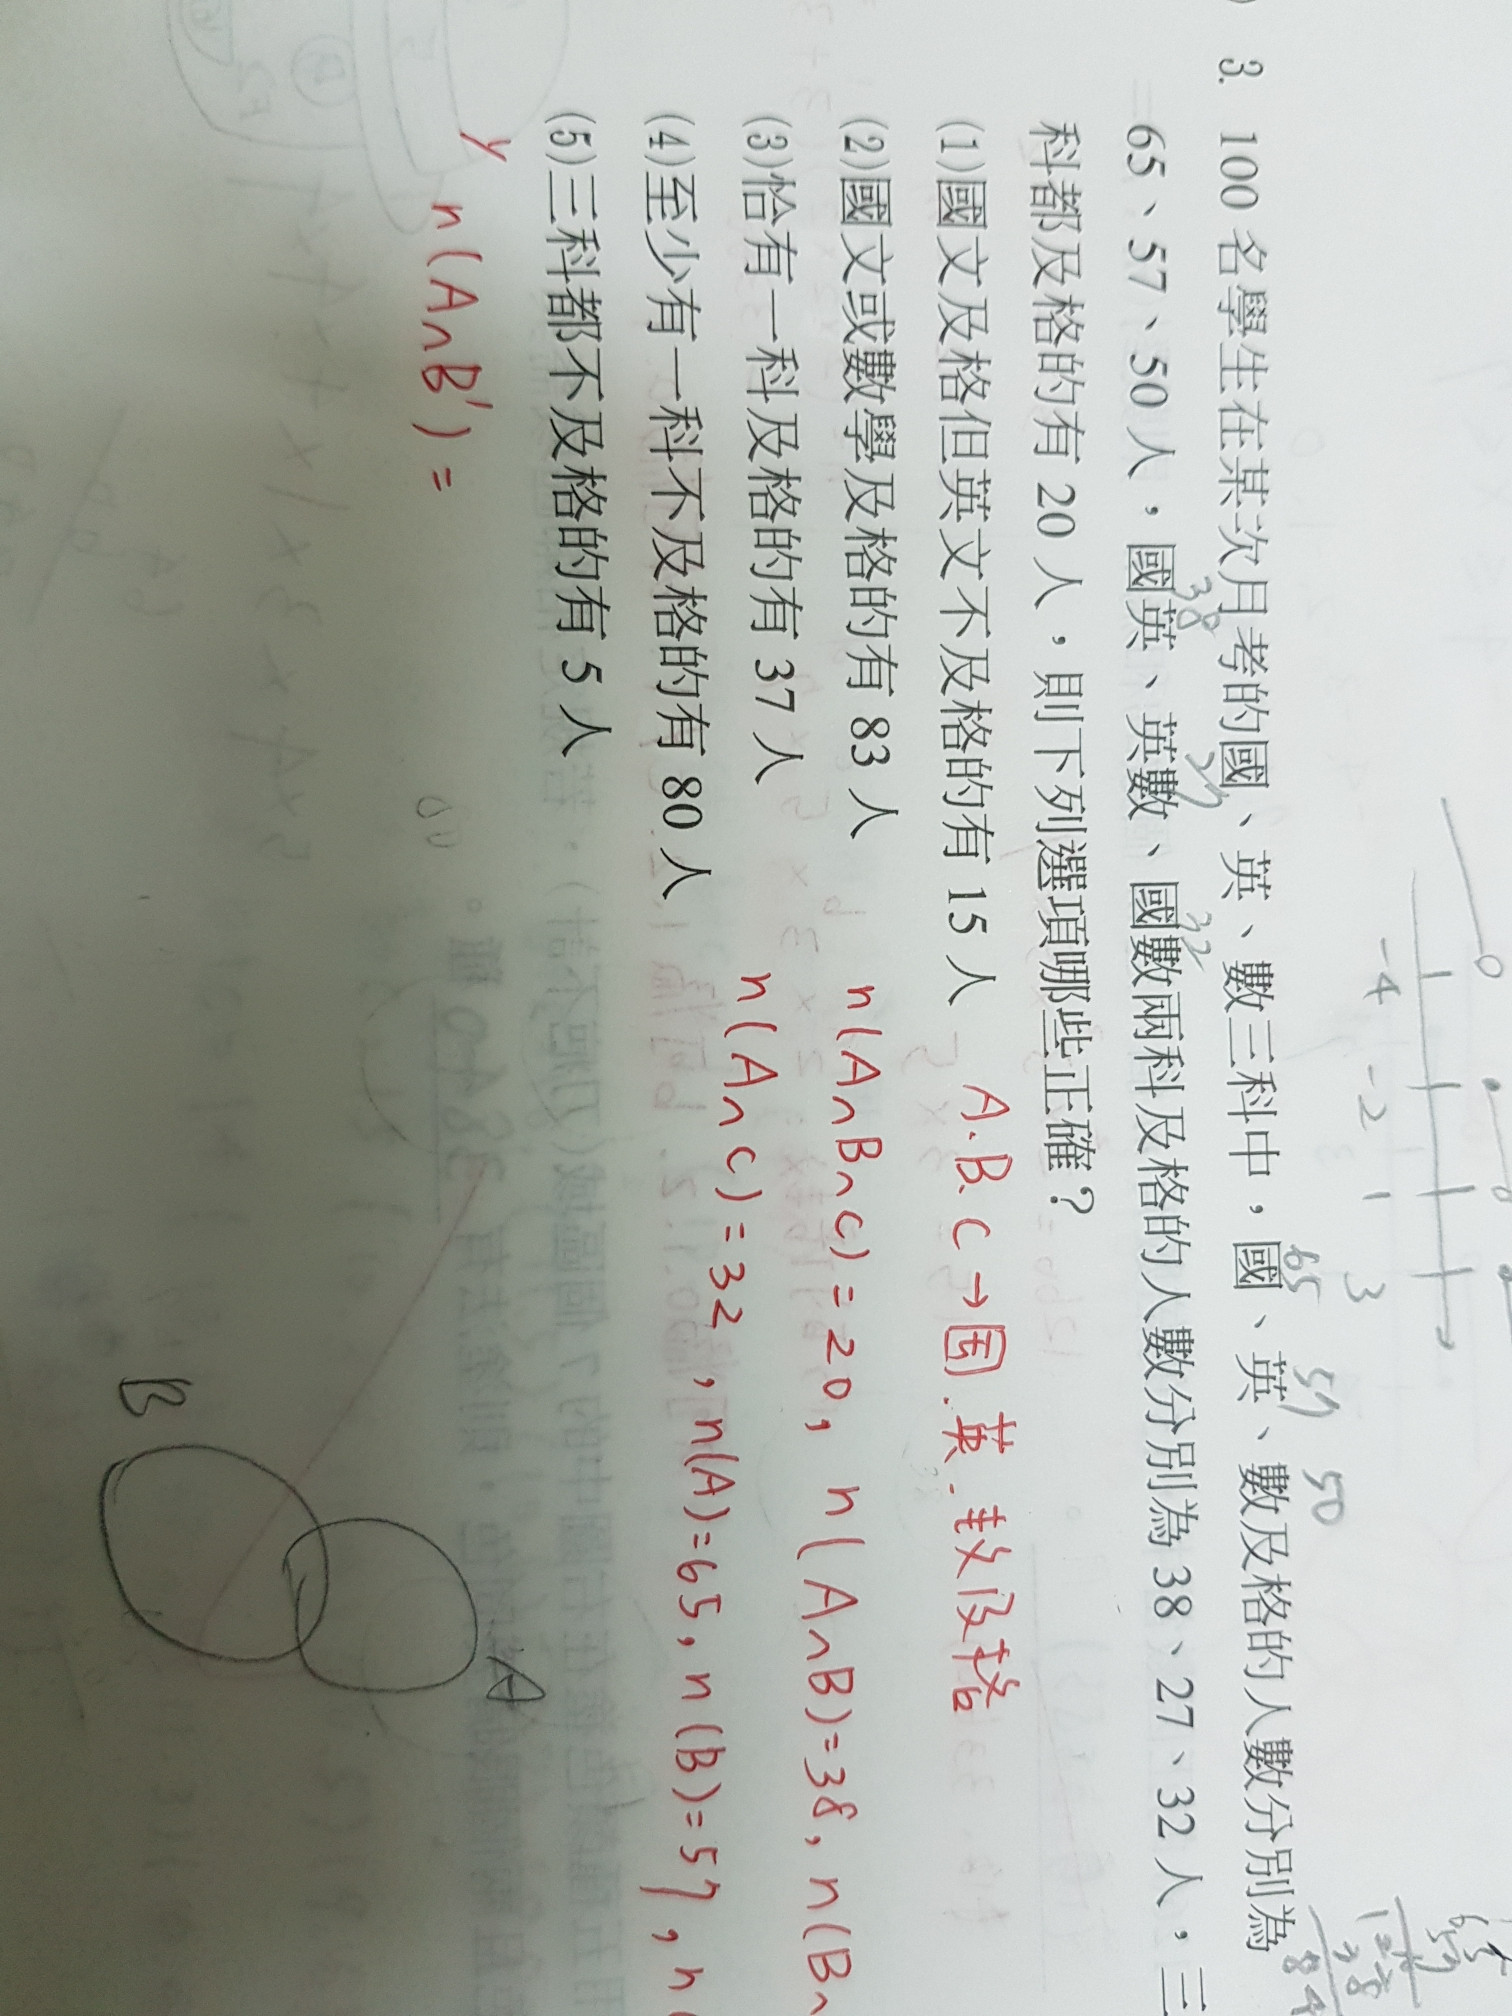 3. 100 名學生在某次月考的國、英、數三科中，國、英、數及格的人數分別為
65、57、50 人，國英、英數、國數兩科及格的人數分別為 38、27、32 人，三
科都及格的有 20 人，則下列選項哪些正確？
(1)國文及格但英文不及格的有 15 人
(2)國文或數學及格的有 83 人
(3)恰有一科及格的有 37 人
(4)至少有一科不及格的有 80 人
(5)三科都不及格的有 5 人
65 57 50
38 27 32
A.B.C→国.英.数及格
n(A∩B∩C)=20, n(A∩B)=38, n(B∩
n(A∩C)=32, n(A)=65, n(B)=57, n(
n(A∩B')=
-4 -2 1 3
A
B